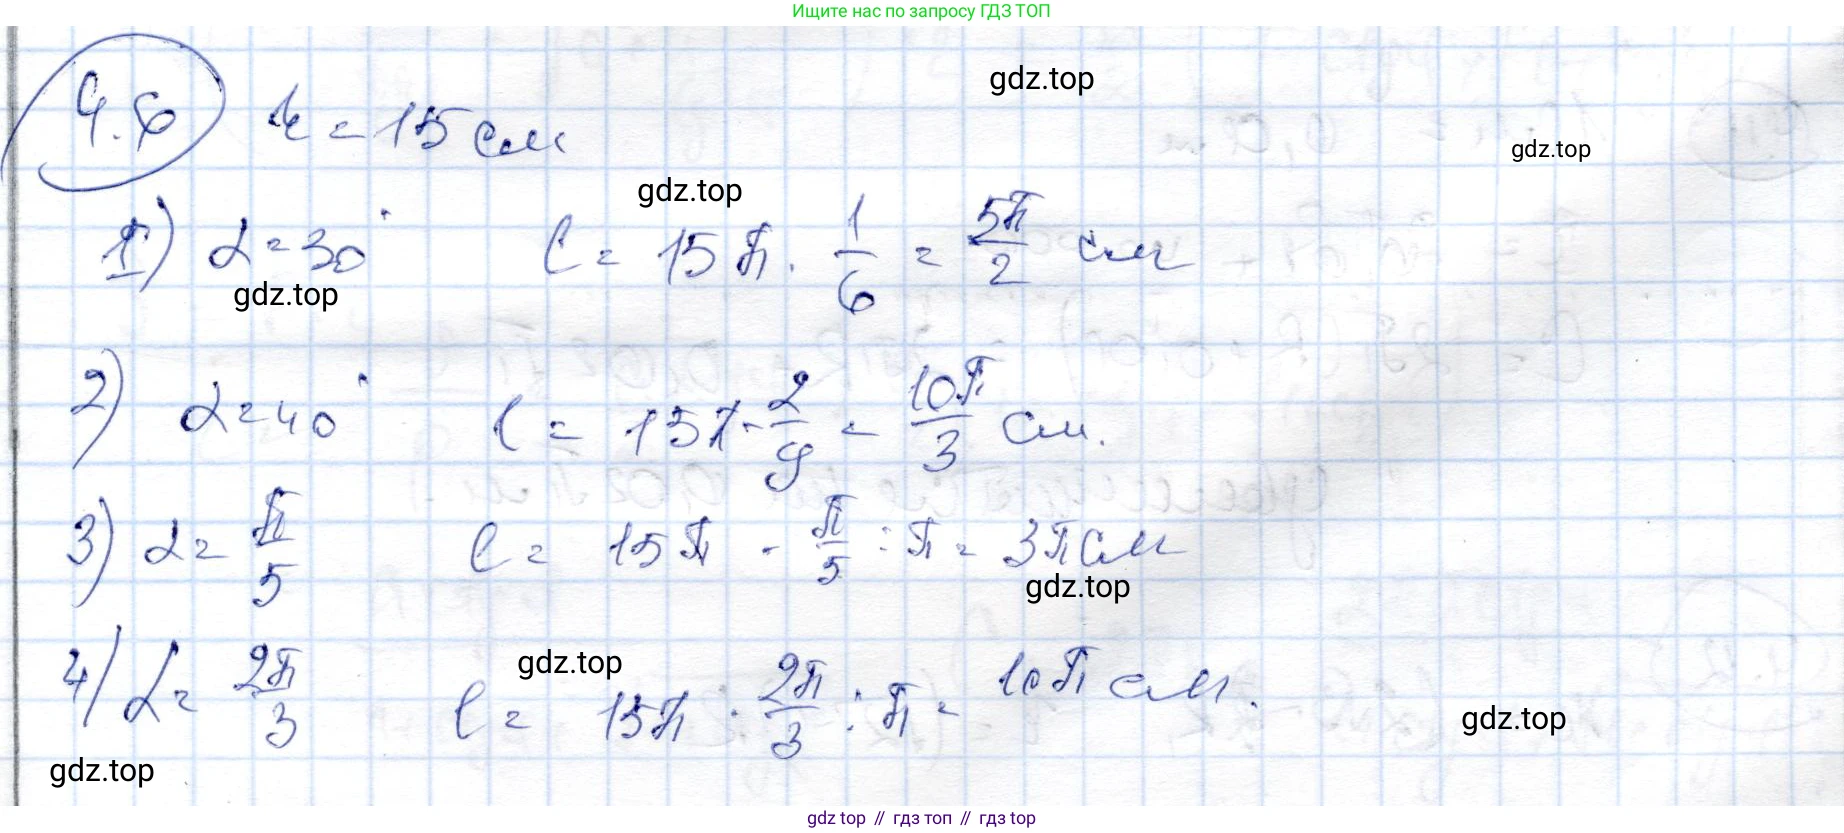 Ищите нас по запросу ГДЗ ТОП
gdz.top
4.6 r = 15 см
gdz.top
gdz.top
1) α = 30° l = 15π · 1/6 = 5π/2 см
gdz.top
2) α = 40° l = 15π · 2/9 = 10π/3 см.
3) α = π/5 l = 15π · π/5 : π = 3π см
gdz.top
4) α = 2π/3 l = 15π · 2π/3 : π = 10π см.
gdz.top
gdz.top
gdz.top
gdz top // гдз топ // gdz top